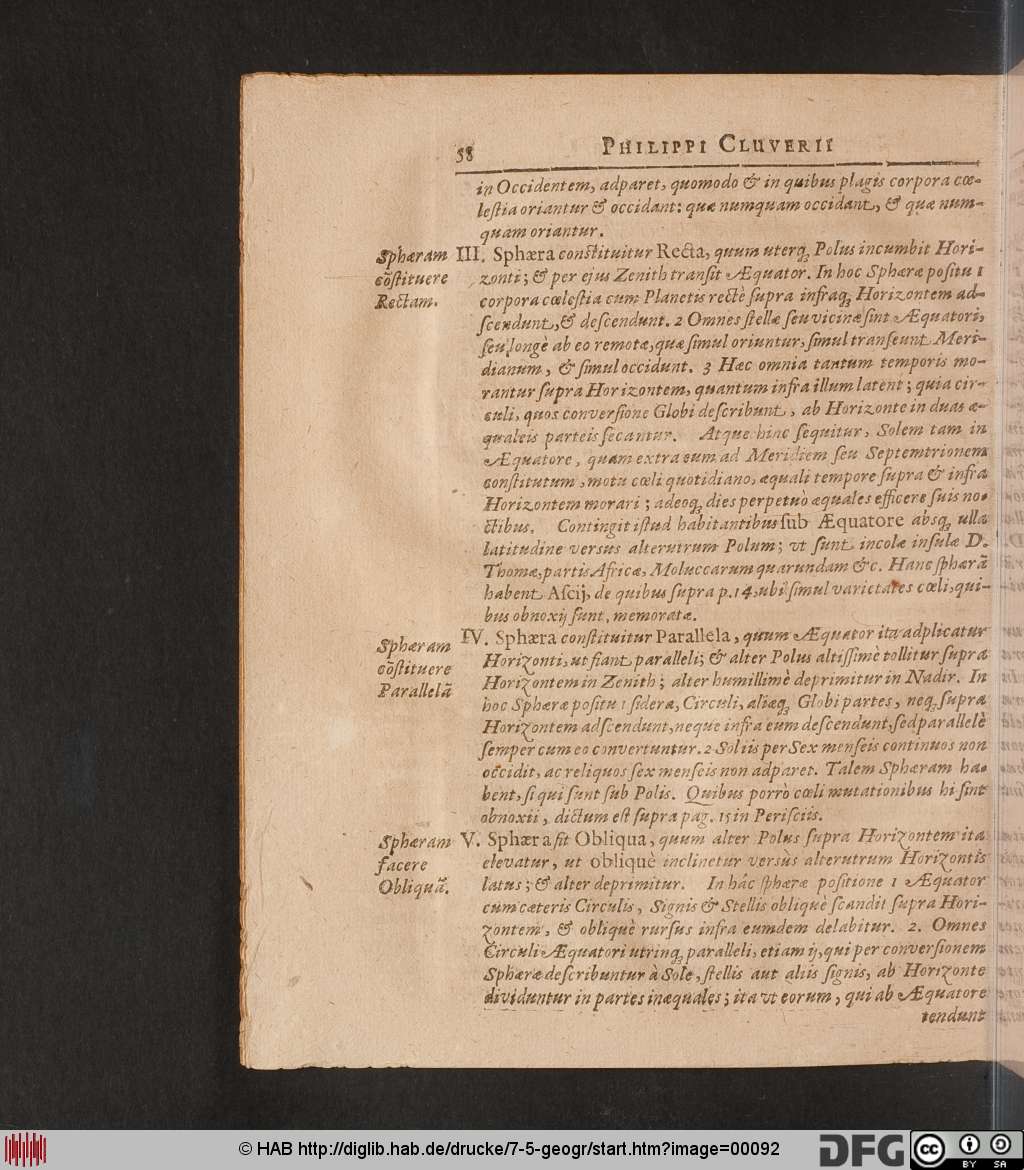 58
PHILIPPI CLUVERII
in Occidentem, adparet, quomodo & in quibus plagis corpora cœ-
leſtia oriantur & occidant: quæ numquam occidant, & quæ num-
quam oriantur.
Sphæram
cōſtituere
Rectam.
III. Sphæra conſtituitur Recta, quum uterq́; Polus incumbit Hori-
zonti; & per ejus Zenith tranſit Æquator. In hoc Sphæræ poſitu 1
corpora cœleſtia cum Planetis rectè ſupra infraq́; Horizontem ad-
ſcendunt, & deſcendunt. 2 Omnes ſtellæ ſeu vicinæ ſint Æquatori,
ſeu longè ab eo remotæ, quæ ſimul oriuntur, ſimul tranſeunt Meri-
dianum, & ſimul occidunt. 3 Hæc omnia tantum temporis mo-
rantur ſupra Horizontem, quantum infra illum latent; quia cir-
culi, quos converſione Globi deſcribunt, ab Horizonte in duas æ-
qualeis parteis ſecantur. Atque hinc ſequitur, Solem tam in
Æquatore, quam extra eum ad Meridiem ſeu Septemtrionem
conſtitutum, motu cœli quotidiano, æquali tempore ſupra & infra
Horizontem morari; adeoq́; dies perpetuò æquales efficere ſuis no-
ctibus. Contingit iſtud habitantibus ſub Æquatore absq́; ulla
latitudine verſus alterutrum Polum; vt ſunt incolæ inſulæ D.
Thomæ, partis Africæ, Moluccarum quarundam &c. Hanc ſphærã
habent Aſcij, de quibus ſupra p. 14, ubi ſimul varietates cœli, qui-
bus obnoxij ſunt, memoratæ.
Sphæram
cōſtituere
Parallelã
IV. Sphæra conſtituitur Parallela, quum Æquator ita adplicatur
Horizonti, ut fiant paralleli; & alter Polus altiſſimè tollitur ſupra
Horizontem in Zenith; alter humillimè deprimitur in Nadir. In
hoc Sphæræ poſitu 1 ſidera, Circuli, aliæq́; Globi partes, neq́; ſupra
Horizontem adſcendunt, neque infra eum deſcendunt, ſed parallelè
ſemper cum eo convertuntur. 2 Sol iis per Sex menſeis continuos non
occidit, ac reliquos ſex menſeis non adparet. Talem Sphæram ha-
bent, ſi qui ſunt ſub Polis. Quibus porrò cœli mutationibus hi ſint
obnoxii, dictum eſt ſupra pag. 15 in Periſciis.
Sphæram
facere
Obliquã.
V. Sphæra fit Obliqua, quum alter Polus ſupra Horizontem ita
elevatur, ut obliquè inclinetur versùs alterutrum Horizontis
latus; & alter deprimitur. In hâc ſphæræ poſitione 1 Æquator
cum cæteris Circulis, Signis & Stellis obliquè ſcandit ſupra Hori-
zontem, & obliquè rurſus infra eumdem delabitur. 2. Omnes
Circuli Æquatori utrinq́; paralleli, etiam ij, qui per converſionem
Sphæræ deſcribuntur à Sole, ſtellis aut aliis ſignis, ab Horizonte
dividuntur in partes inæquales; ita vt eorum, qui ab Æquatore
tendunt
© HAB http://diglib.hab.de/drucke/7-5-geogr/start.htm?image=00092
DFG
cc
BY SA